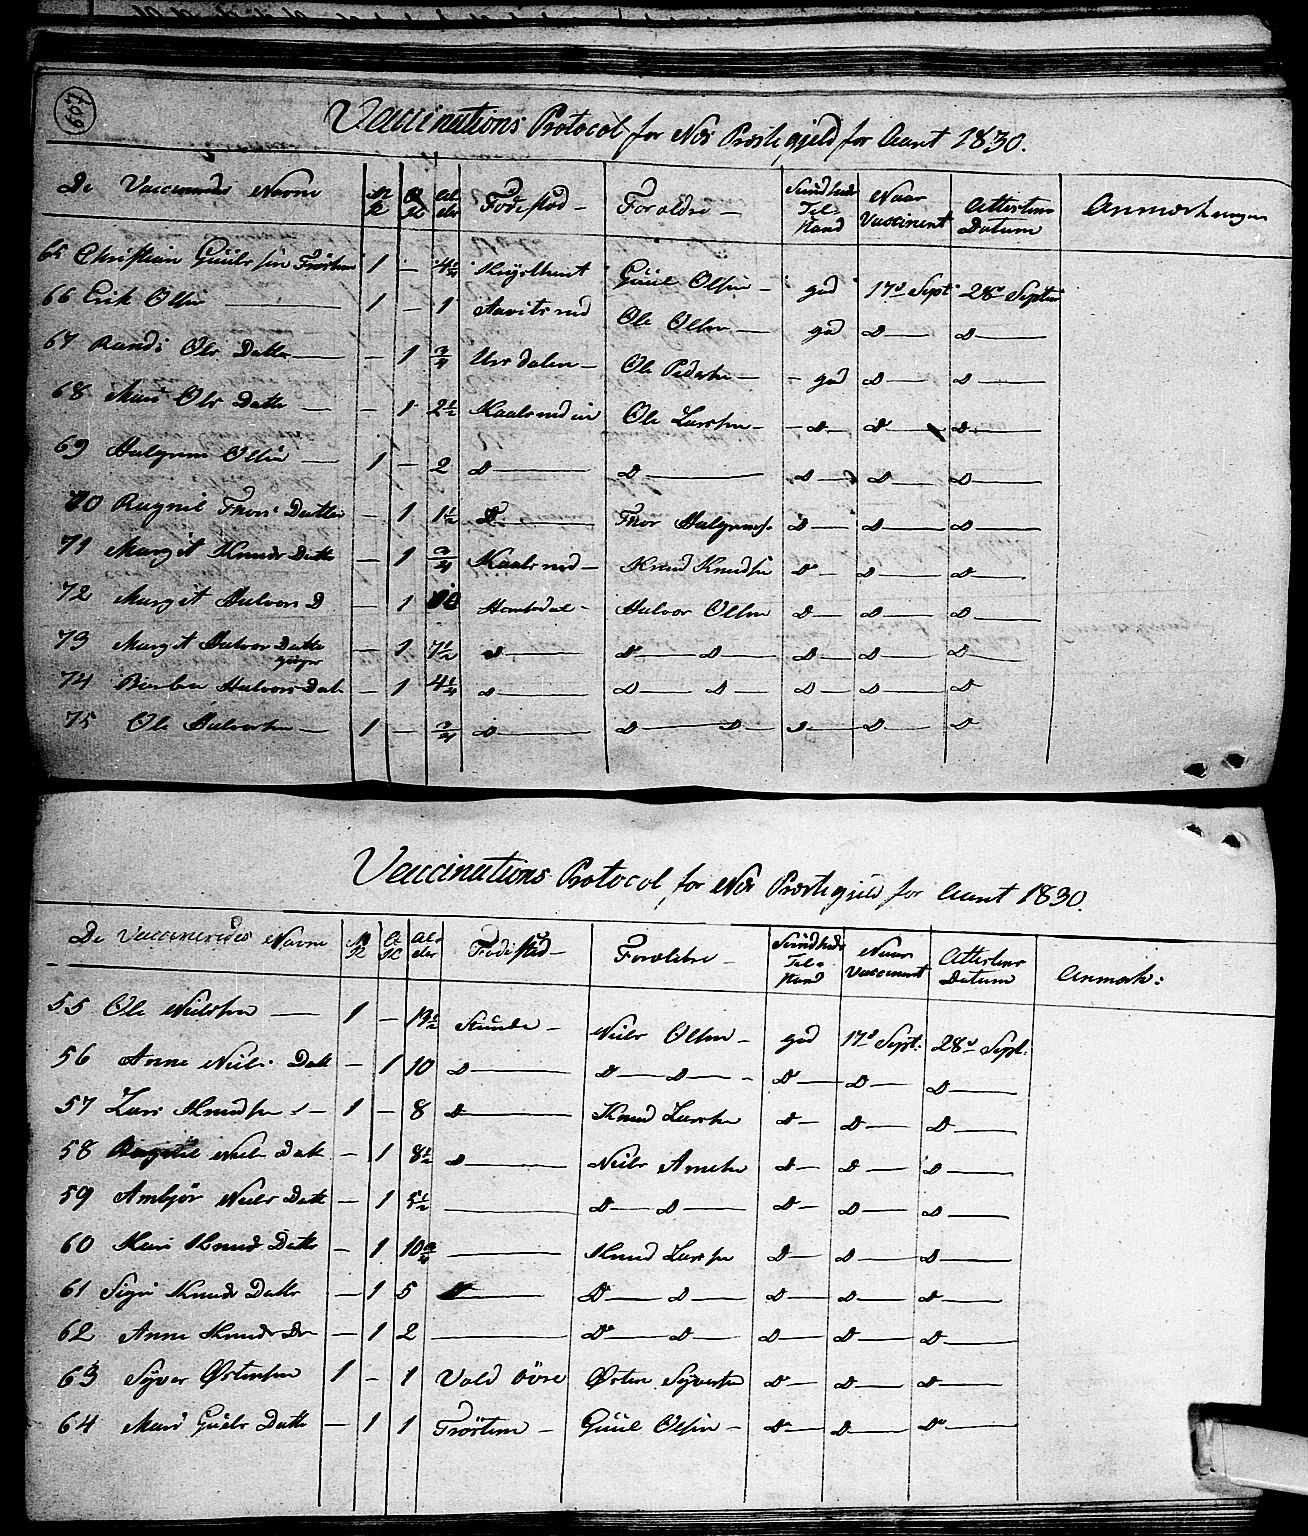 609
Vaccinations Protocol for Næs Præstegjeld for Aaret 1830.
De Vaccineredes Navne M K Q K Al der Födestæd Forældre Sundheds Til- stand Naar Vaccineret Attestens Datum Anmærkninger
65 Christian Guulssen 1 – 4½ Guul Olsen god 17d Sept 28d Septbr
66 Erik Olsen 1 – 1 Ole Olsen god D D
67 Randi Ols Datter – 1 3/4 Ursdalen Ole Pedersen god D D
68 Mari Ols Datter – 1 2½ Ole Larsen D D D
69 Halgrim Olsen 1 – 2 D D D D D
70 Ragnil Thors Datter – 1 1½ D Thor Halgrims. D D D
71 Margit Knuds Datter – 1 3/4 Knud Knudsen D D D
72 Margit Halvors D – 1 10 Halvor Olsen D D D
73 Margit Halvor Datter – 1 7½ D D D D D D
74 Halvors Dat. – 1 4¼ D D D D D D
75 Ole Halvorsen 1 – 3/4 D D D D D D
Vaccinations Protocol for Næs Præstegjeld for Aaret 1830.
De Vaccineredes Navne M K Q K Al- der Födestæd Forældre Sundheds Til- stand Naar Vaccineret Attestens Datum Anmærk:
55 Ole Neilssen 1 – Neils Olsen god 17d Sept. 28d Sept.
56 Anne Neils Datt – 1 10 D D D D D D
57 Lars Knudsen 1 – 8 D Knud Larsen D D D
58 Ragnil Neils Datt – 1 8½ D Neils Arnesen D D D
59 Ambjör Neils Datt – 1 5½ D D D D D
60 Kari Knuds Datter – 1 10¾ Knud Larsen D D D
61 Sigri Knuds Datter – 1 5 D D D D D D
62 Anne Knuds Dr – 1 2 D D D D D
63 Syver Østensen 1 – 1 Vold övre Østen Syversen D D D
64 Mari Guuls Datter – 1 1 Tröstem Guul Olsen D D D